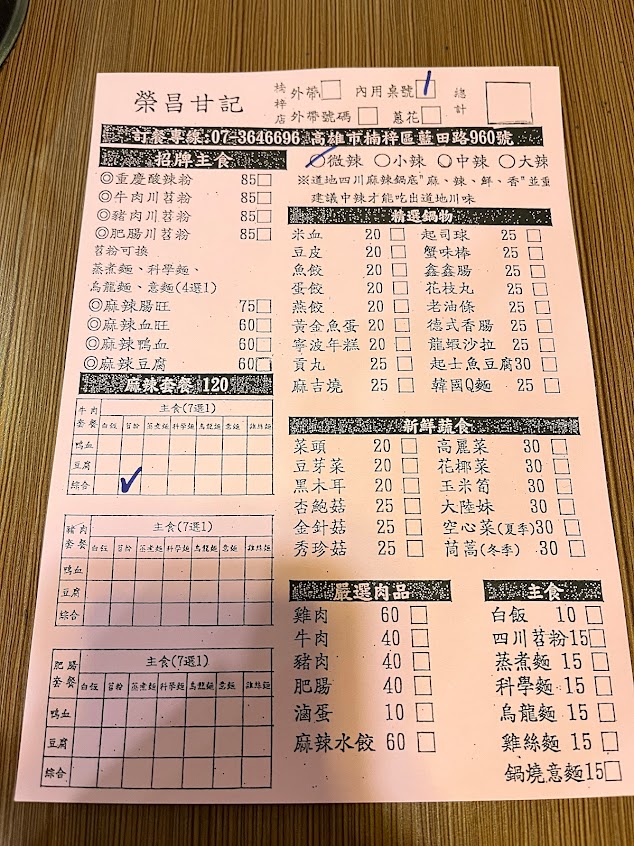 榮昌甘記
楠梓店
外帶□ 內用桌號 1 總計
外帶號碼□ 蔥花□
訂餐專線:07-3646696 高雄市楠梓區藍田路960號
招牌主食
◎重慶酸辣粉 85□
◎牛肉川苕粉 85□
◎豬肉川苕粉 85□
◎肥腸川苕粉 85□
苕粉可換
蒸煮麵、科學麵、
烏龍麵、意麵(4選1)
◎麻辣腸旺 75□
◎麻辣血旺 60□
◎麻辣鴨血 60□
◎麻辣豆腐 60□
麻辣套餐 120
牛肉套餐 主食(7選1)
白飯 苕粉 蒸煮麵 科學麵 烏龍麵 意麵 雞絲麵
鴨血
豆腐
綜合 ✓
豬肉套餐 主食(7選1)
白飯 苕粉 蒸煮麵 科學麵 烏龍麵 意麵 雞絲麵
鴨血
豆腐
綜合
肥腸套餐 主食(7選1)
白飯 苕粉 蒸煮麵 科學麵 烏龍麵 意麵 雞絲麵
鴨血
豆腐
綜合
○微辣 ○小辣 ○中辣 ○大辣
※道地四川麻辣鍋底"麻、辣、鮮、香"並重
建議中辣才能吃出道地川味
精選鍋物
米血 20 □ 起司球 25 □
豆皮 20 □ 蟹味棒 25 □
魚餃 20 □ 鑫鑫腸 25 □
蛋餃 20 □ 花枝丸 25 □
燕餃 20 □ 老油條 25 □
黃金魚蛋 20 □ 德式香腸 25 □
寧波年糕 20 □ 龍蝦沙拉 25 □
貢丸 25 □ 起士魚豆腐30 □
麻吉燒 25 □ 韓國Q麵 25 □
新鮮蔬食
菜頭 20 □ 高麗菜 30 □
豆芽菜 20 □ 花椰菜 30 □
黑木耳 20 □ 玉米筍 30 □
杏鮑菇 25 □ 大陸妹 30 □
金針菇 25 □ 空心菜(夏季)30 □
秀珍菇 25 □ 茼蒿(冬季) 30 □
嚴選肉品
雞肉 60 □
牛肉 40 □
豬肉 40 □
肥腸 40 □
滷蛋 10 □
麻辣水餃 60 □
主食
白飯 10 □
四川苕粉15□
蒸煮麵 15 □
科學麵 15 □
烏龍麵 15 □
雞絲麵 15 □
鍋燒意麵15□